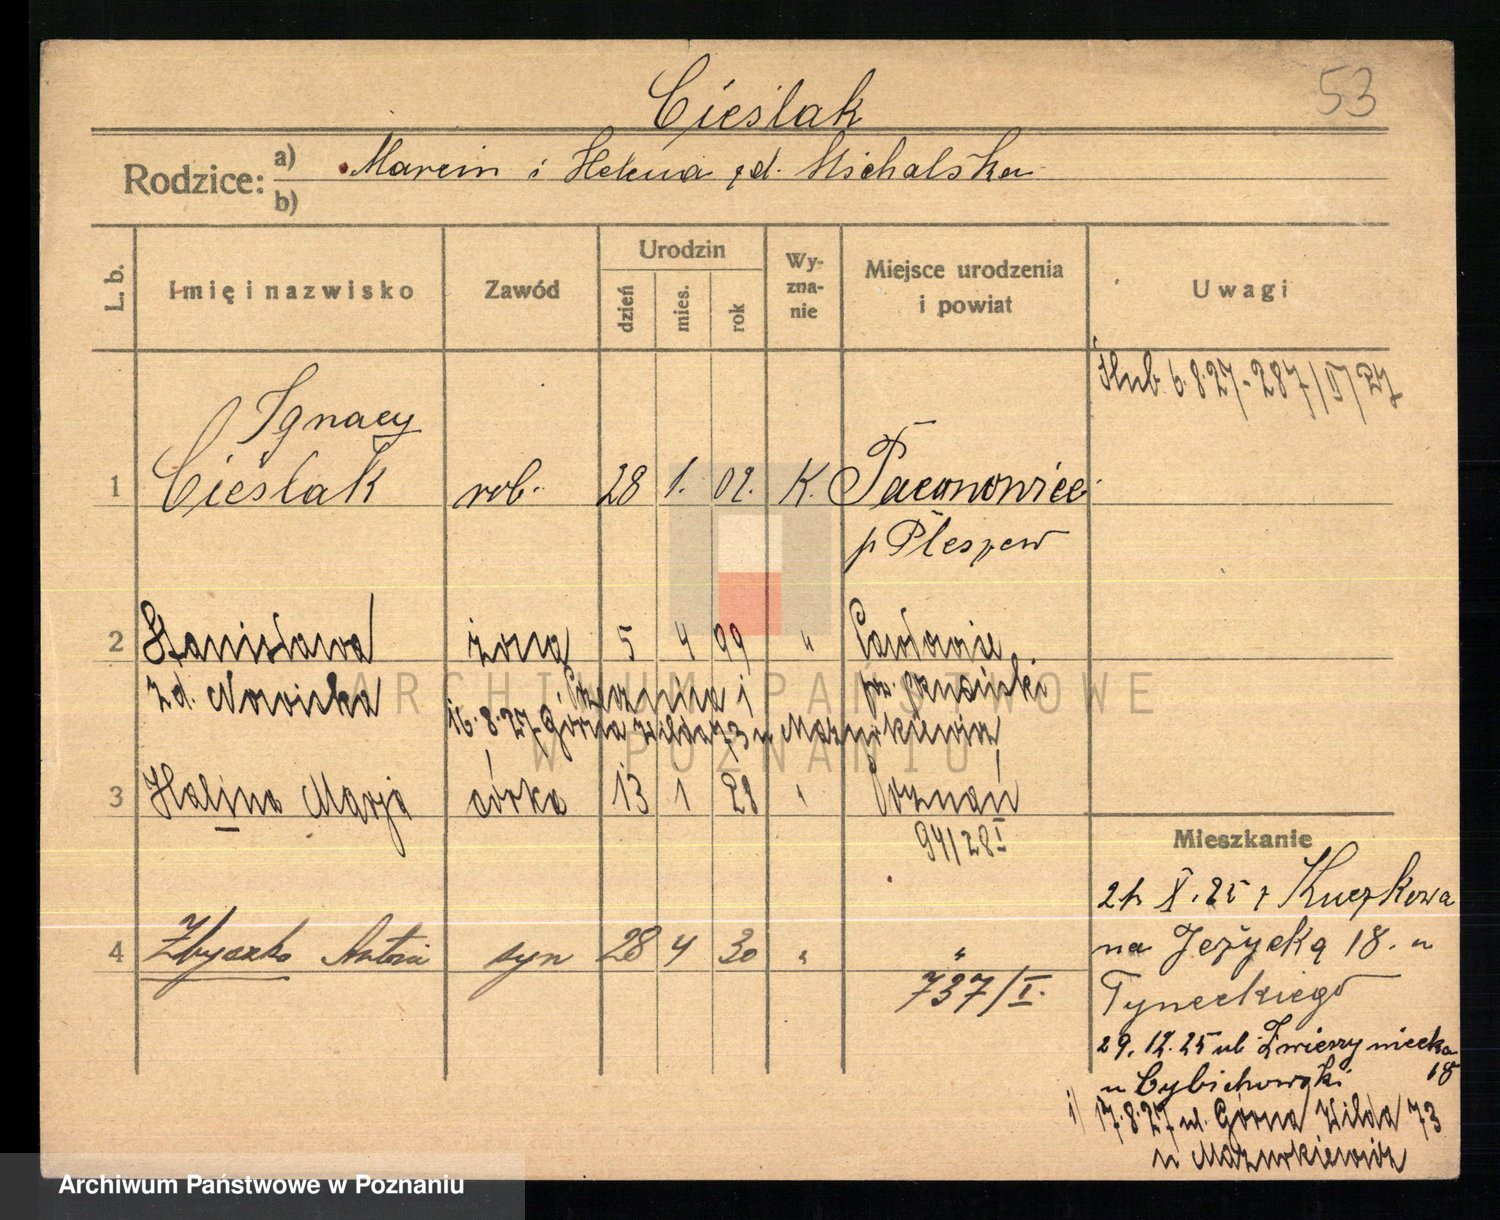 53
Cieślak
Rodzice: a) Marcin i Helena zd. Michalska
b)
L. b. Imię i nazwisko Zawód Urodzin dzień mies. rok Wyznanie Miejsce urodzenia i powiat Uwagi
Ślub 6.8.27 - 287/II/27
Ignacy
1 Cieślak rob. 28 1. 02. K. Pacanowice
p Pleszew
2 Stanisława żona 5 4 99 "
zd. Nowicka
16.8.27 Górna Wilda 73 u Mazurkiewicz
3 Halina Marja córka 13 1 28 " Poznań
94/28 I
4 Zbyszko Antoni syn 28 4 30 " "
737/I.
Mieszkanie
21 X. 25 z Kuczkowa
na Jeżycką 18. u
Tyneckiego
29. 12. 25 ul Zwierzyniecka
18
u Cybichowski
17.8.27 ul. Górna Wilda 73
u Mazurkiewicz
ARCHIWUM PAŃSTWOWE
W POZNANIU
Archiwum Państwowe w Poznaniu